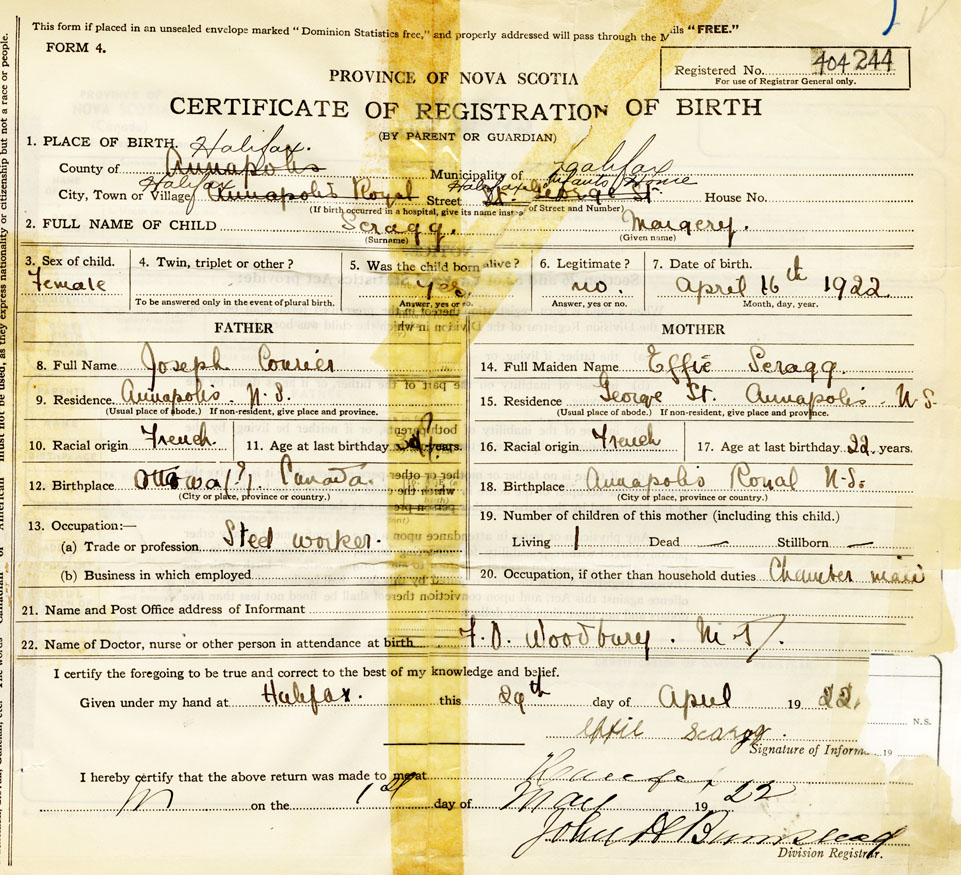 This form if placed in an unsealed envelope marked "Dominion Statistics free," and properly addressed will pass through the Mails "FREE."
FORM 4.
Registered No. 404244
For use of Registrar General only.
PROVINCE OF NOVA SCOTIA
CERTIFICATE OF REGISTRATION OF BIRTH
(BY PARENT OR GUARDIAN)
1. PLACE OF BIRTH. Halifax.
County of Annapolis Municipality of Halifax
City, Town or Village Halifax Annapolis Royal Street Halifax Infants Home St. George St. House No.
(If birth occurred in a hospital, give its name instead of Street and Number)
2. FULL NAME OF CHILD Scragg. Margery.
(Surname) (Given name)
3. Sex of child. Female
4. Twin, triplet or other ?
To be answered only in the event of plural birth.
5. Was the child born alive ? Yes
Answer, yes or no.
6. Legitimate ? no.
Answer, yes or no.
7. Date of birth. April 16th 1922
Month, day, year.
FATHER
8. Full Name Joseph Courier
9. Residence Annapolis. N.S.
(Usual place of abode.) If non-resident, give place and province.
10. Racial origin French 11. Age at last birthday years.
12. Birthplace Ottowa(?). Canada.
(City or place, province or country.)
13. Occupation:—
(a) Trade or profession Steel worker.
(b) Business in which employed
MOTHER
14. Full Maiden Name Effie Scragg.
15. Residence George St. Annapolis N.S.
(Usual place of abode.) If non-resident, give place and province.
16. Racial origin French 17. Age at last birthday 22 years.
18. Birthplace Annapolis Royal N.S.
(City or place, province or country.)
19. Number of children of this mother (including this child.)
Living 1 Dead — Stillborn —
20. Occupation, if other than household duties Chamber maid
21. Name and Post Office address of Informant
22. Name of Doctor, nurse or other person in attendance at birth F. D. Woodbury. M.D.
I certify the foregoing to be true and correct to the best of my knowledge and belief.
Given under my hand at Halifax. this 29th day of April 1922.
Effie Scragg.
Signature of Inform
N.S.
19
I hereby certify that the above return was made to me at
on the 1st day of May 1922
John H Bumstead
Division Registrar.